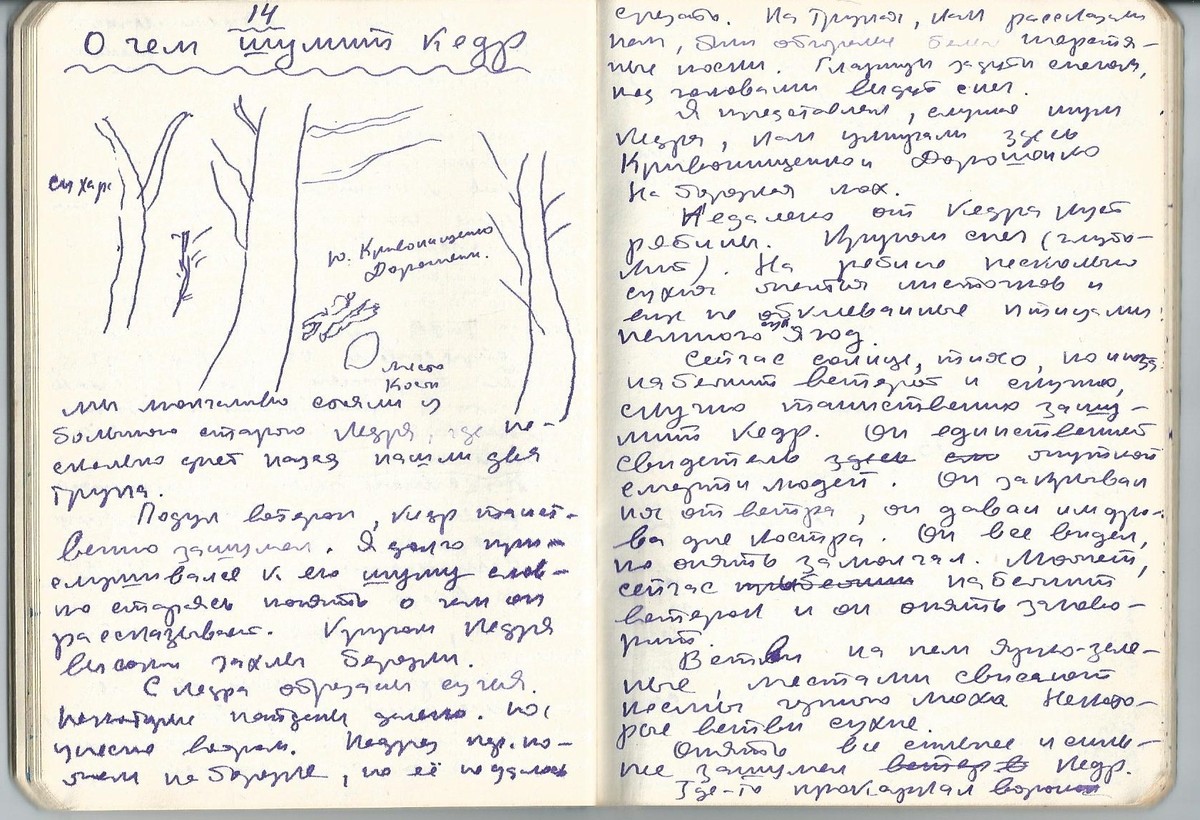 14
О чем шумит кедр
сухара
Ю. Кривонищенко
Дорошенк.
Место
Костр
Мы молчаливо стояли у
большого старого кедра, где не-
сколько дней назад нашли два
трупа.
Подул ветерок, кедр таинст-
венно зашумел. Я долго при-
слушивался к его шуму слов-
но стараясь понять о чем он
рассказывает. Кругом кедра
высокии чахлы березки.
С кедра обрезаны сучья.
Некоторые далеко. Но
унесло ветром. Кедра
на березке, но её не удалось
срезать. На трупах, как рассказали
нам, были обгорелы белы шерстя-
ные носки. Глазницы задуты снегом,
под головами виден снег.
Я представлял, слушая шум
кедра, как умирали здесь
Кривонищенко и Дорошенко
На березках мох.
Недалеко от кедра куст
рябины. Кругом снег (глубо-
кий). На рябине несколько
сухих листочков и
еще не обклеванные птицами
немного ягод.
Сейчас солнце, тихо, но иногда
набежит ветерок и скучно,
скучно таинственно зашу-
мит кедр. Он единственный
свидетель здесь жуткой
смерти людей. Он закрывал
их от ветра, он давал им дро-
ва для костра. Он все видел,
но опять замолчал. Может,
сейчас набежит
ветерок и он опять загово-
рит.
Ветви на нем ярко-зеле-
ные, местами свисают
космы мха Некото-
рые ветви сухие.
Опять все сильнее и силь-
нее зашумел ветер в кедр.
Где-то прокаркал ворон